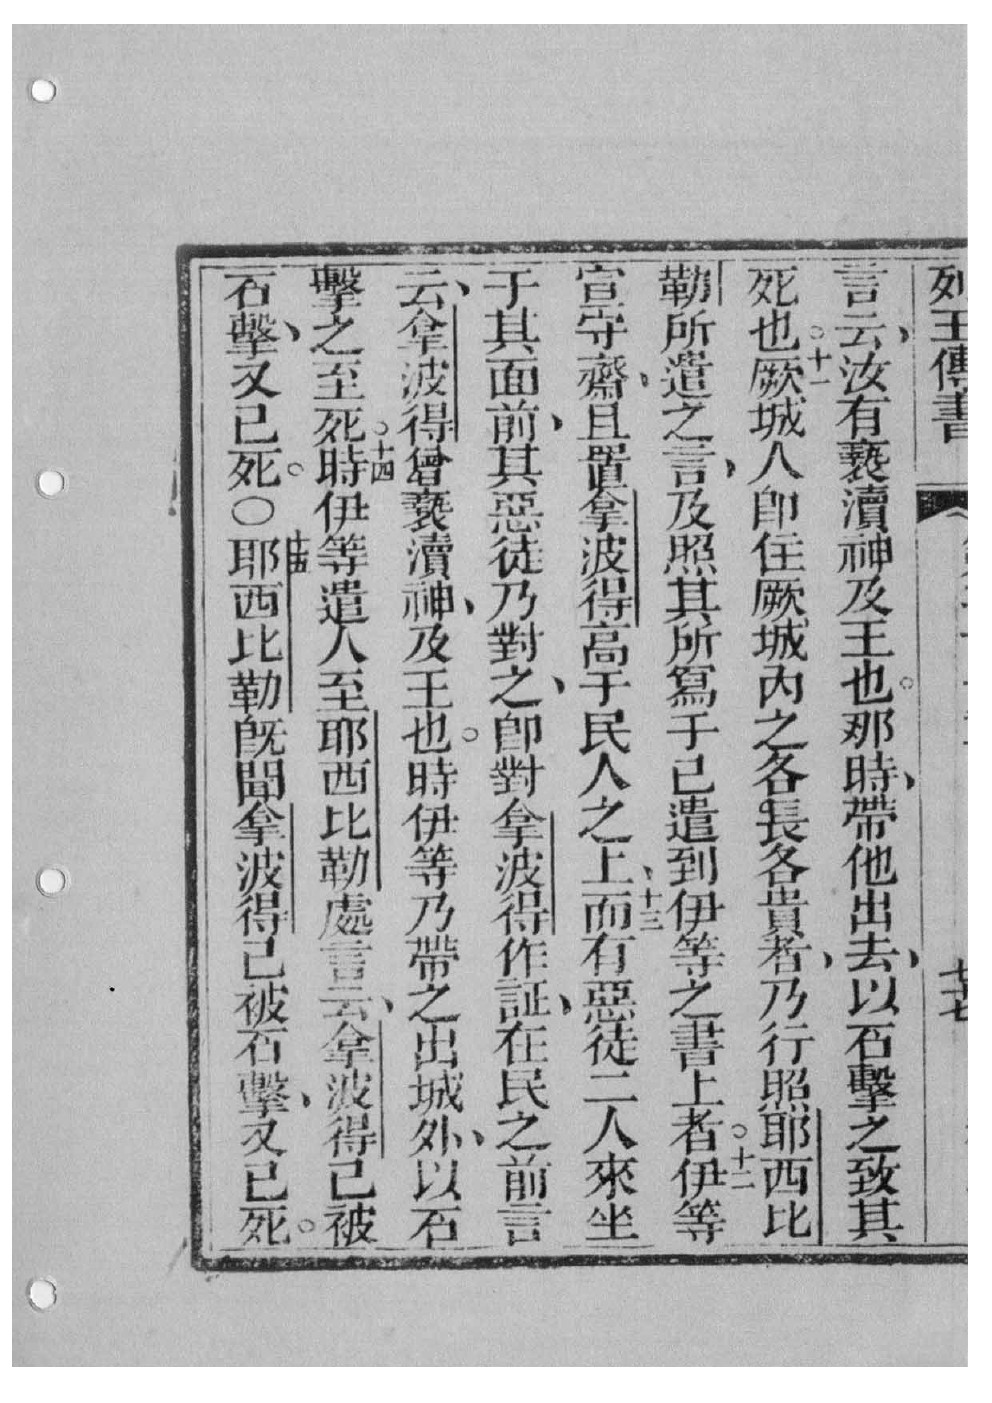 列王傳書
言云、汝有褻瀆神及王也。那時、帶他出去、以石擊之致其
死也。十一厥城人卽住厥城內之各長各貴者、乃行照耶西比
勒所遣之言、及照其所寫于已遣到伊等之書上者。十二伊等
宣守齋、且置拿波得高于民人之上、十三而有惡徒二人來坐
于其面前、其惡徒乃對之、卽對拿波得作証、在民之前言
云、拿波得曾褻瀆神、及王也。時伊等乃帶之出城外、以石
擊之至死。十四時伊等遣人至耶西比勒處言云、拿波得已被
石擊、又已死。○十五耶西比勒旣聞拿波得已被石擊、又已死。